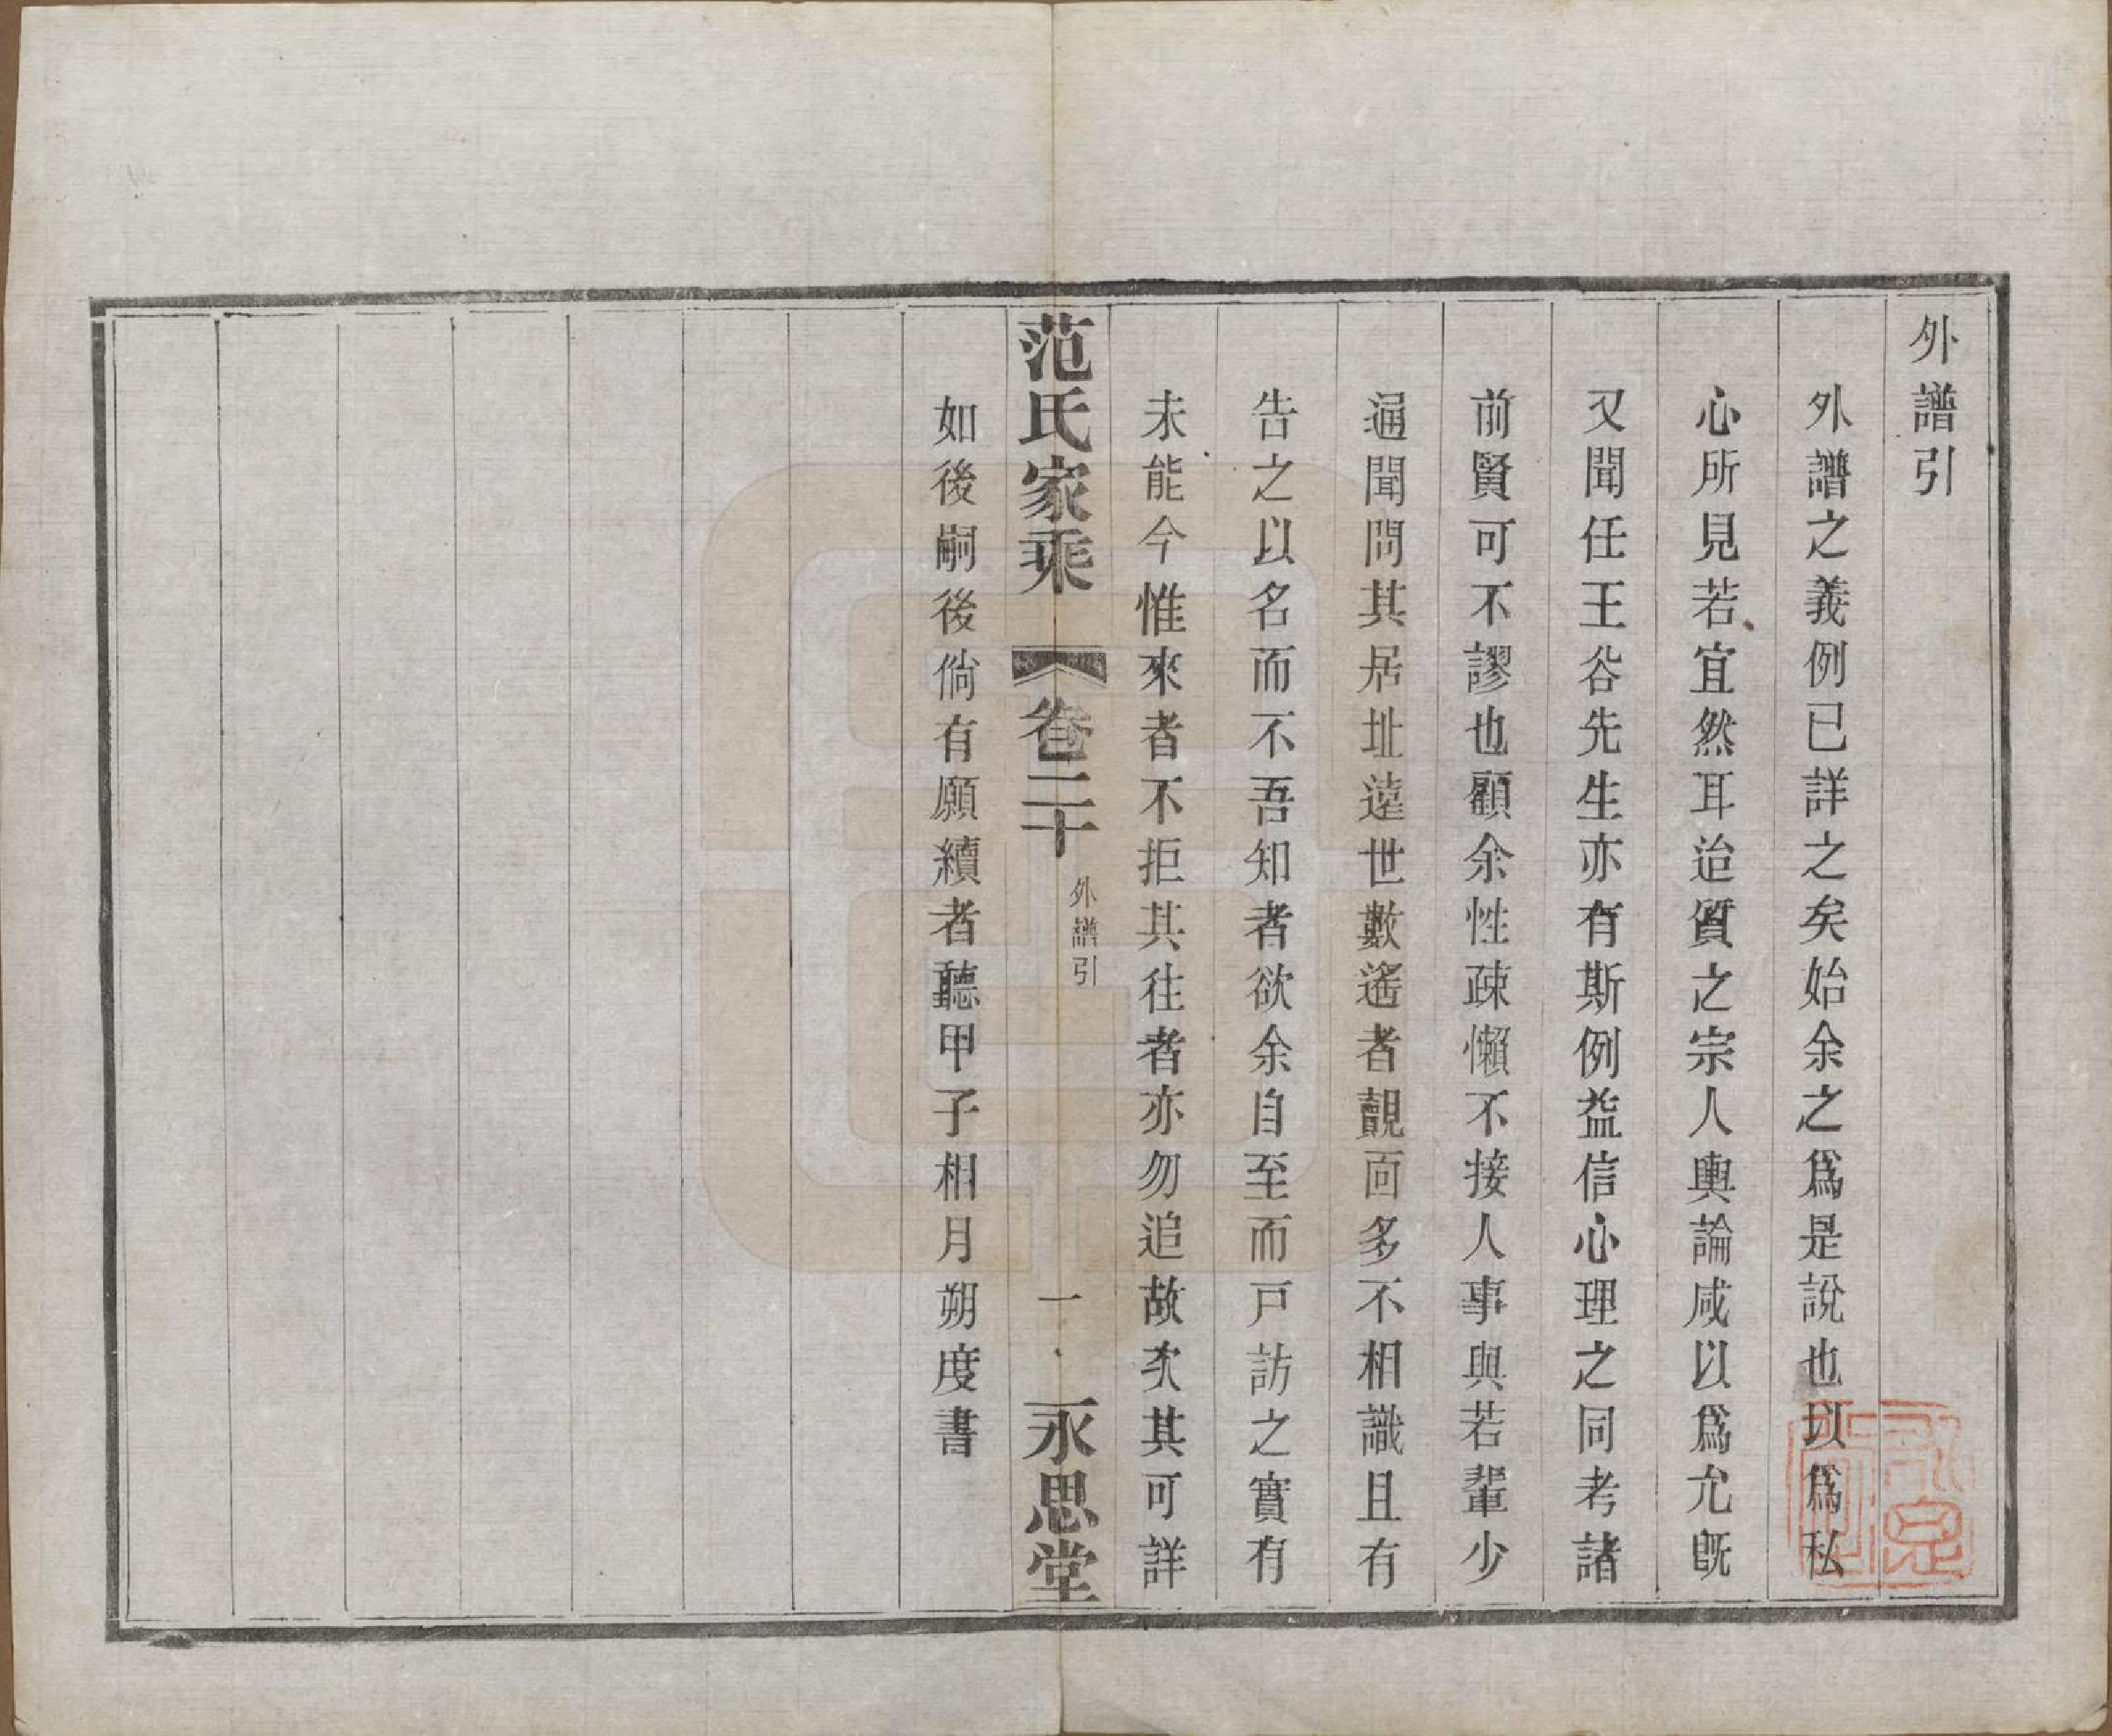 外譜引
外譜之義例已詳之矣始余之爲是說也以爲私
心所見若宜然耳迨質之宗人輿論咸以爲允旣
又聞任王谷先生亦有斯例益信心理之同考諸
前賢可不謬也顧余性疎懶不接人事與若輩少
通聞問其居址遠世數遙者覿面多不相識且有
告之以名而不吾知者欲余自至而戸訪之實有
未能今惟來者不拒其往者亦勿追故次其可詳
范氏家乘
卷二十
外譜引
一
永思堂
如後嗣後倘有願續者聽甲子相月朔度書